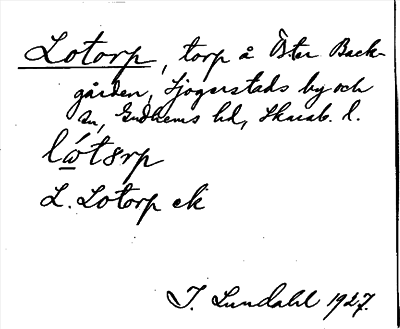 Lotorp, torp å Öster Back-
gården, Sjogerstads by och
sn, Gudhems hd, Skarab. l.
lώtərp
L. Lotorp ek
I. Lundahl 1927.